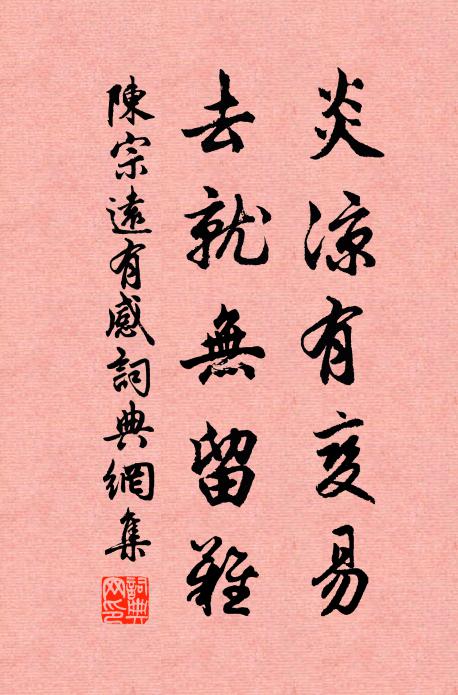 炎涼有变易
去就無留難
陳宗遠有感詞典網集
詞典網印